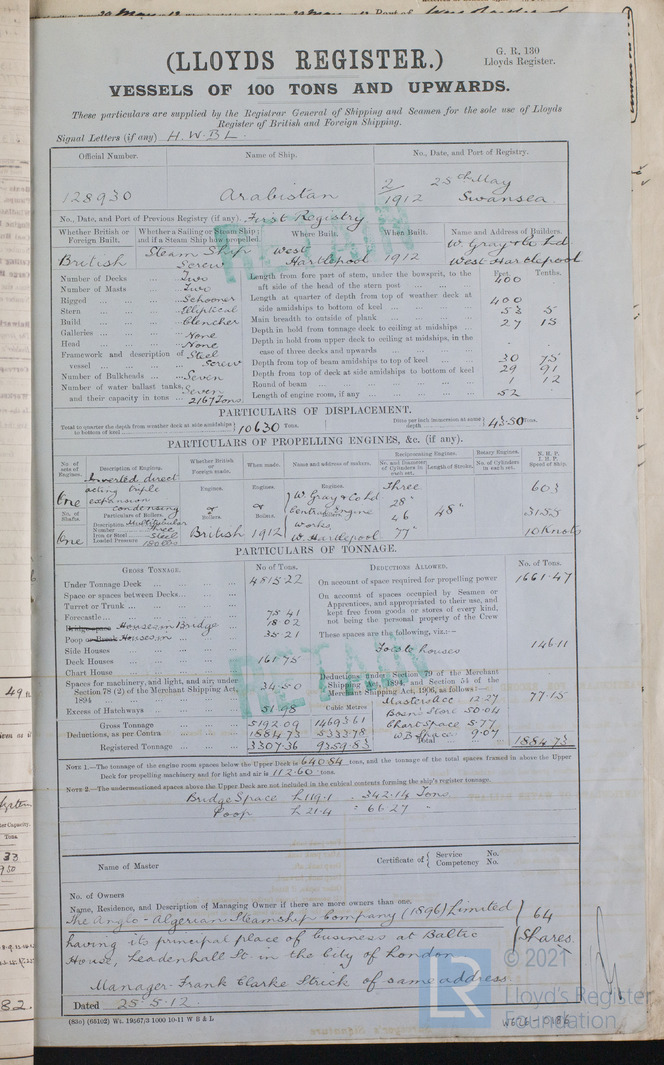 (LLOYDS REGISTER.)
G. R. 130
Lloyds Register.
VESSELS OF 100 TONS AND UPWARDS.
These particulars are supplied by the Registrar General of Shipping and Seamen for the sole use of Lloyds
Register of British and Foreign Shipping.
Signal Letters (if any) H.W.B.L.
Official Number. Name of Ship. No., Date, and Port of Registry.
128930 Arabistan 2/1912 25th May Swansea
No., Date, and Port of Previous Registry (if any). First Registry
Whether British or Foreign Built. Whether a Sailing or Steam Ship and if a Steam Ship how propelled. Where Built. When Built. Name and Address of Builders.
British Steam Ship Screw West Hartlepool 1912 W. Gray & Co Ltd West Hartlepool
RETAIN
Feet. Tenths.
Number of Decks Two
Number of Masts Two
Rigged Schooner
Stern Elliptical
Build Clencher
Galleries None
Head None
Framework and description of vessel Steel Screw
Number of Bulkheads Seven
Number of water ballast tanks, and their capacity in tons Seven 2167 Tons
Length from fore part of stem, under the bowsprit, to the aft side of the head of the stern post 400
Length at quarter of depth from top of weather deck at side amidships to bottom of keel 400
Main breadth to outside of plank 52 5
Depth in hold from tonnage deck to ceiling at midships 27 15
Depth in hold from upper deck to ceiling at midships, in the case of three decks and upwards
Depth from top of beam amidships to top of keel 30 75
Depth from top of deck at side amidships to bottom of keel 29 91
Round of beam 1 12
Length of engine room, if any 52
PARTICULARS OF DISPLACEMENT.
Total to quarter the depth from weather deck at side amidships to bottom of keel 10630 Tons. Ditto per inch immersion at same depth 43.50 Tons.
PARTICULARS OF PROPELLING ENGINES, &c. (if any).
No. of sets of Engines. Description of Engines. Whether British or Foreign made. When made. Name and address of makers. Reciprocating Engines. No. and Diameter of Cylinders in each set. Length of Stroke. Rotary Engines. No. of Cylinders in each set. N.H.P. I.H.P. Speed of ship.
One Inverted direct acting triple expansion condensing
Engines. Engines. Engines.
No. of Shafts. Particulars of Boilers. Boilers. Boilers.
One Description Multitubular
Number Three
Iron or Steel Steel
Loaded Pressure 180 lbs
British 1912 W. Gray & Co Ltd Central Engine Works W. Hartlepool
Three 28" 46 77" 48" 603 3155 10 Knots
PARTICULARS OF TONNAGE.
GROSS TONNAGE. No. of Tons.
Under Tonnage Deck 4815.22
Space or spaces between Decks
Turret or Trunk
Forecastle 75 41
Bridge space Houses in Bridge 18 02
Poop or Break Houses in 35.21
Side Houses
Deck Houses 161.75
Chart House
Spaces for machinery, and light, and air, under Section 78 (2) of the Merchant Shipping Act, 1894 34.50
Excess of Hatchways 51.98
Cubic Metres
Gross Tonnage 5192.09 14693.61
Deductions, as per Contra 1884.73 5333.78
Registered Tonnage 3307.36 9359.83
DEDUCTIONS ALLOWED. No. of Tons.
On account of space required for propelling power 1661.47
On account of spaces occupied by Seamen or Apprentices, and appropriated to their use, and kept free from goods or stores of every kind, not being the personal property of the Crew
These spaces are the following, viz.:—
Focsle houses 146.11
Deductions under Section 79 of the Merchant Shipping Act, 1894 and Section 54 of the Merchant Shipping Act, 1906, as follows:—
Masters Acc 12.27
Bosn Store 50.04
Chart Space 5.77
W B Space 9.07
77.15
Total 1884.73
RETAIN
NOTE 1.—The tonnage of the engine room spaces below the Upper Deck is 640.84 tons, and the tonnage of the total spaces framed in above the Upper
Deck for propelling machinery and for light and air is 112.60 tons.
NOTE 2.—The undermentioned spaces above the Upper Deck are not included in the cubical contents forming the ship's register tonnage.
Bridge Space L 119.1 : 342.14 Tons
Poop L 21.4 : 66.27 "
Name of Master
Certificate of { Service No.
Competency No.
No. of Owners
Name, Residence, and Description of Managing Owner if there are more owners than one.
The Anglo-Algerian Steamship Company (1896) Limited } 64
having its principal place of business at Baltic } Shares.
House, Leadenhall St. in the City of London
Manager - Frank Clarke Strick of same address.
Dated 25.5.12.
(83o) (66102) Wt. 19567/3 1000 10-11 W B & L
© 2021
LR
Lloyd's Register
Foundation
W626-0186